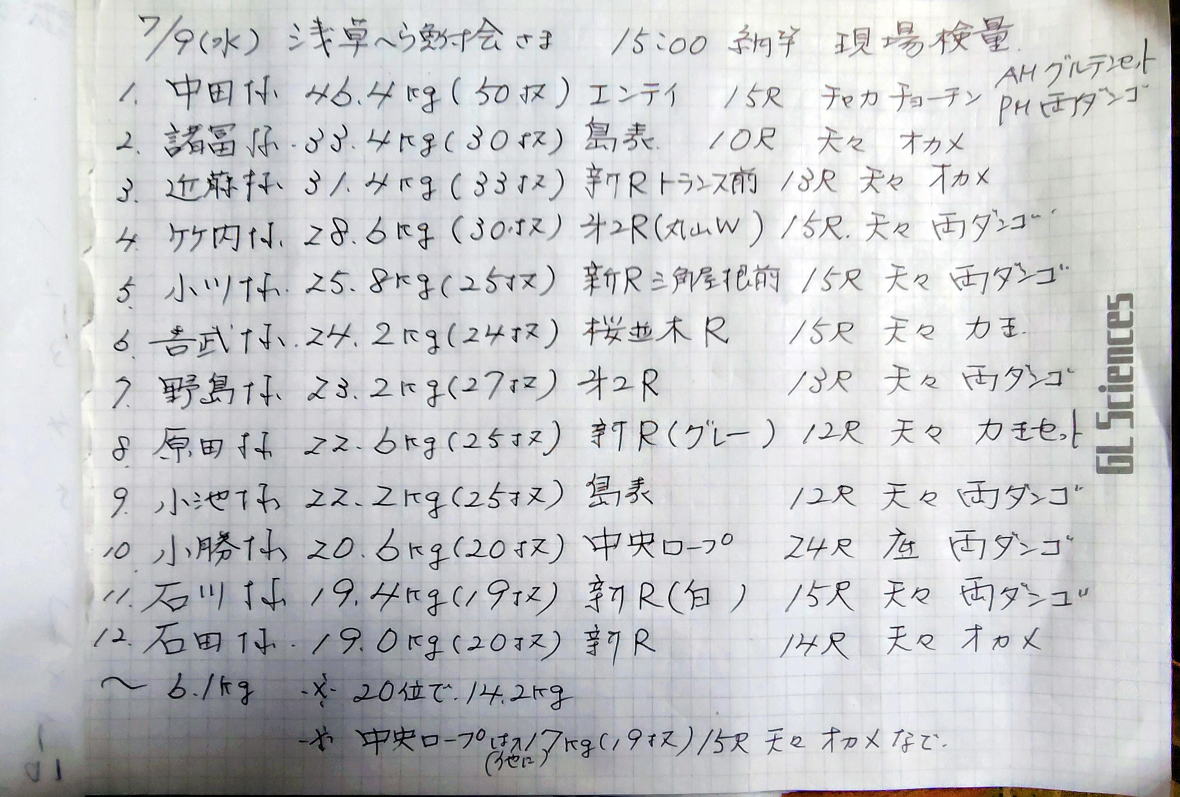 7/9(水) 浅草へら鮒会さま 15:00 納竿 現場検量
1. 中田さん 46.4kg(50枚) エンテイ 15尺 チャカチョーチン AHグルテンセット PH両ダンゴ
2. 諸冨さん 33.4kg(30枚) 島表 10尺 天々 オカメ
3. 近藤さん 31.4kg(33枚) 新R トランス前 13尺 天々 オカメ
4. 竹内さん 28.6kg(30枚) 斗2R(丸山W) 15尺 天々 両ダンゴ
5. 小川さん 25.8kg(25枚) 新R三角屋根前 15尺 天々 両ダンゴ
6. 吉武さん 24.2kg(24枚) 桜並木R 15尺 天々 力玉
7. 野島さん 23.2kg(27枚) 斗2R 13尺 天々 両ダンゴ
8. 原田さん 22.6kg(25枚) 新R(グレー) 12尺 天々 力玉セット
9. 小池さん 22.2kg(25枚) 島表 12尺 天々 両ダンゴ
10. 小勝さん 20.6kg(20枚) 中央ロープ 24尺 底 両ダンゴ
11. 石川さん 19.4kg(19枚) 新R(白) 15尺 天々 両ダンゴ
12. 石田さん 19.0kg(20枚) 新R 14尺 天々 オカメ
〜 6.1kg ※ 20位で 14.2kg
※ 中央ロープは(他に) 17kg(19枚) 15尺 天々 オカメなで.
GL Sciences